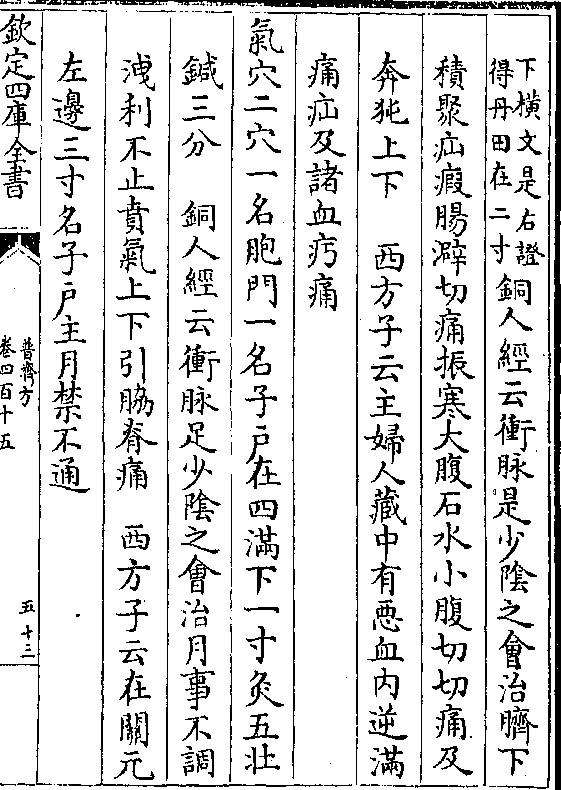 下橫文是右證
得丹田在二寸
銅人經云衝脉是少陰之會治臍下
積聚疝瘕腸澼切痛振寒大腹石水小腹切切痛及
奔㹠上下　西方子云主婦人藏中有惡血内逆滿
痛疝及諸血疞痛
氣穴二穴一名胞門一名子戸在四滿下一寸灸五壯
鍼三分　銅人經云衝脉足少陰之會治月事不調
洩利不止賁氣上下引脇脊痛　西方子云在關元
左邊三寸名子戸主月禁不通
欽定四庫全書
普濟方
卷四百十五
五十三